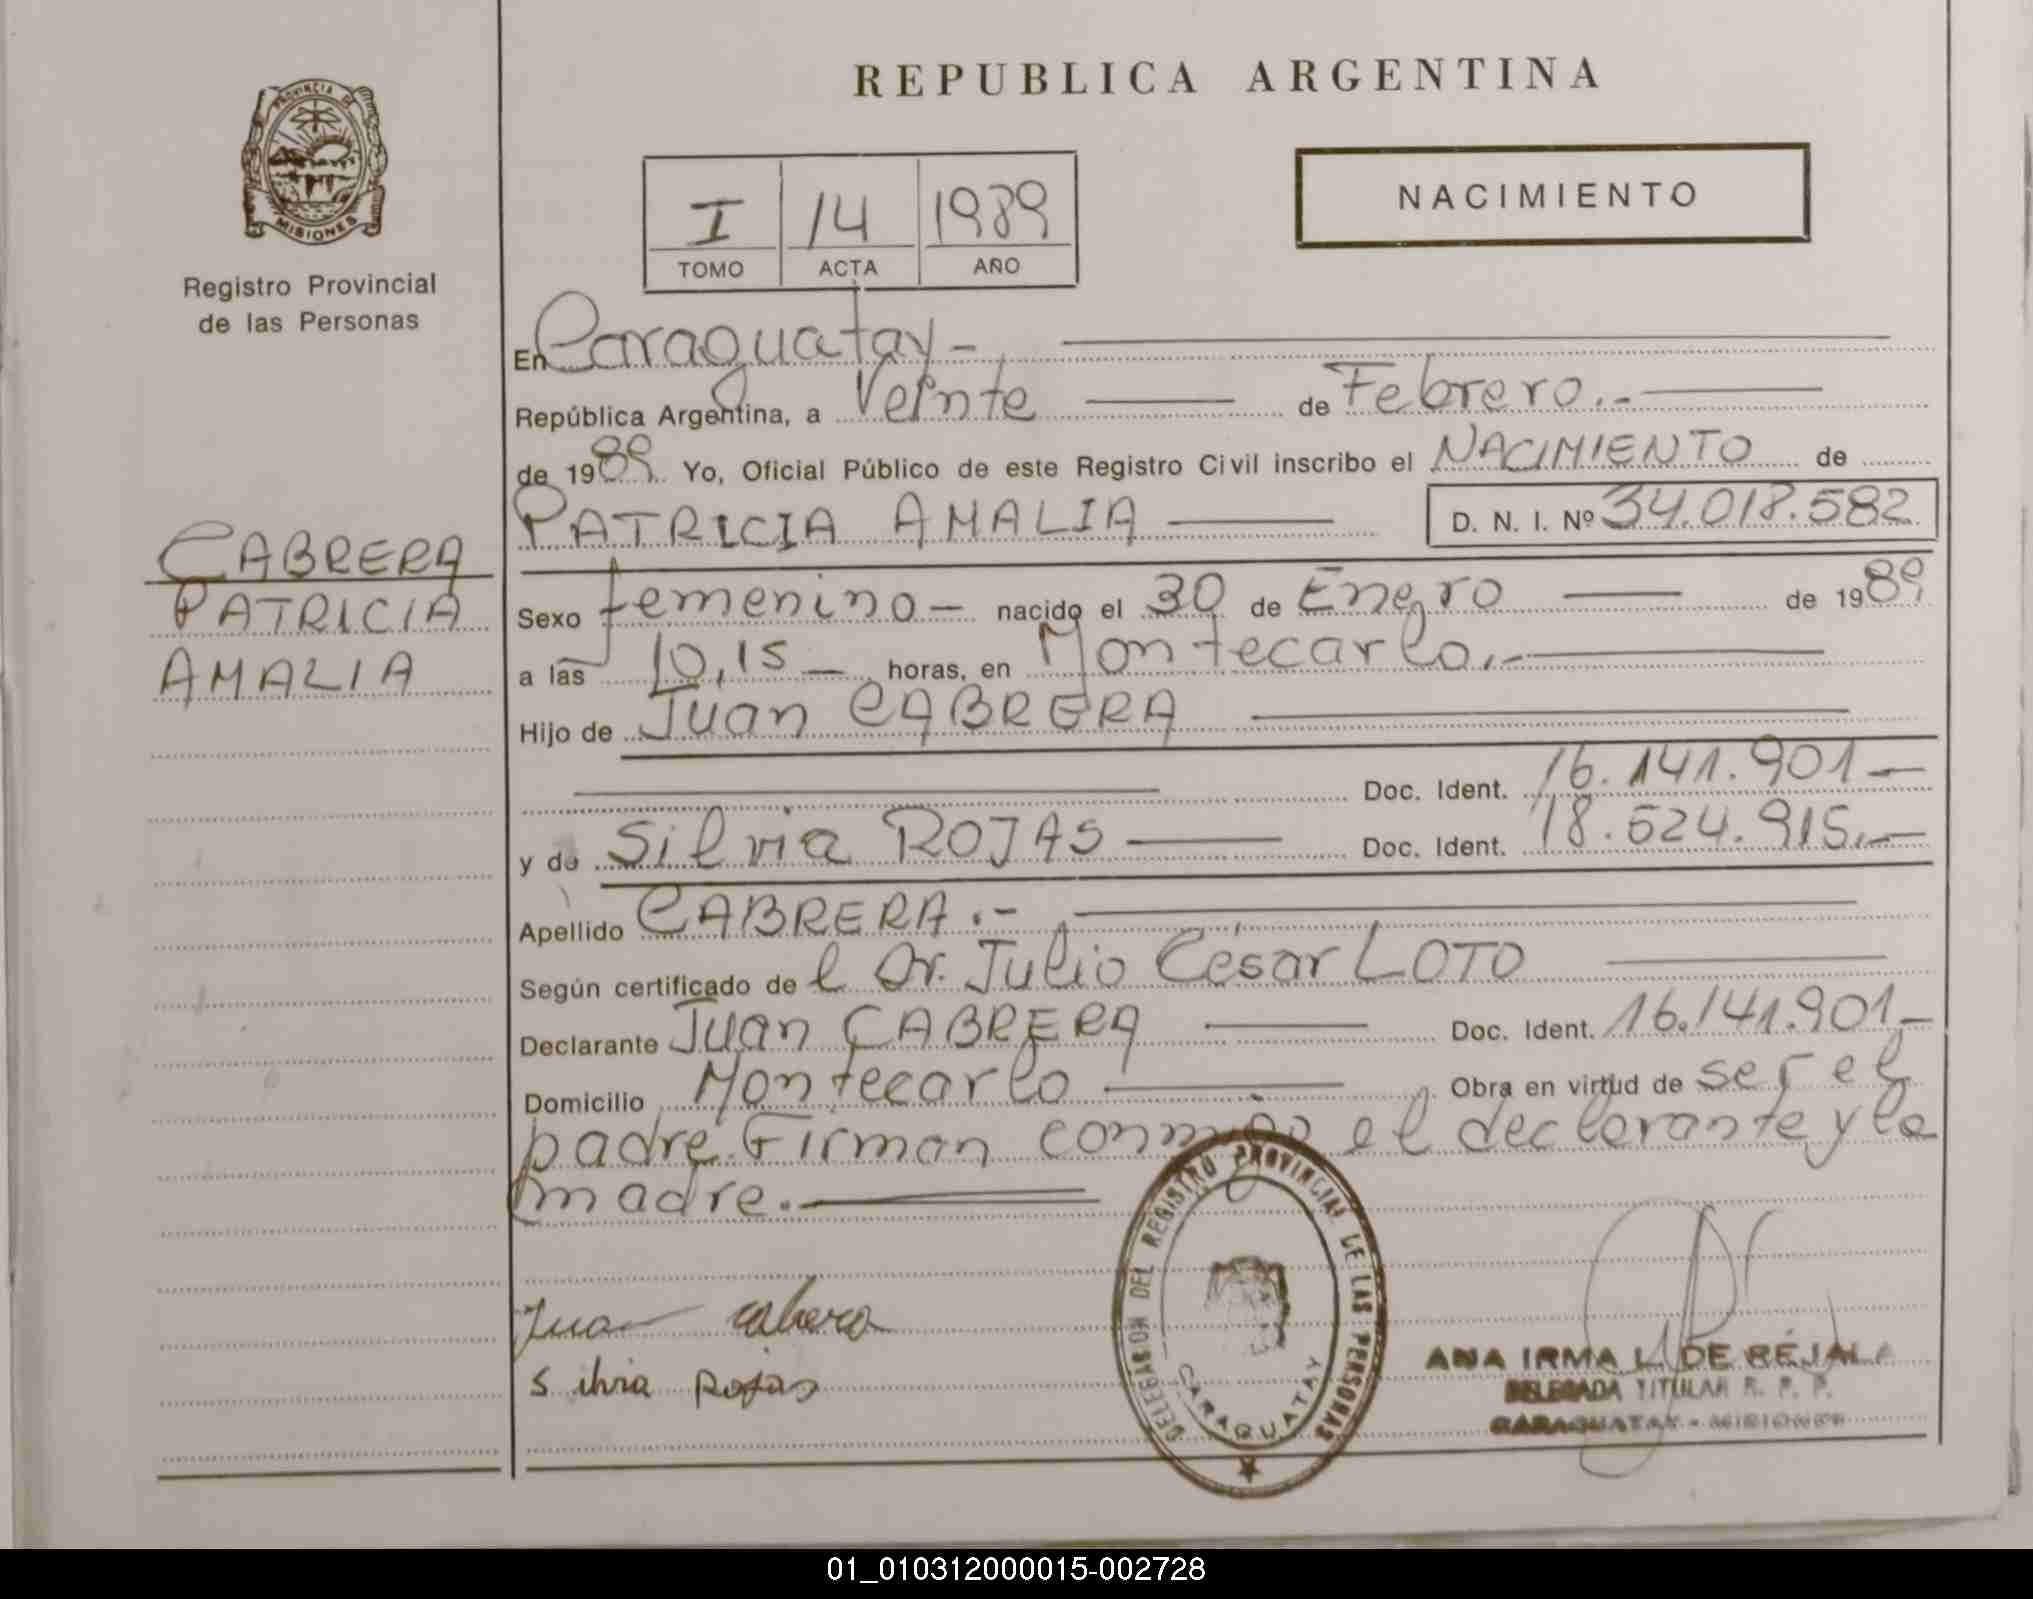 REPUBLICA ARGENTINA
PROVINCIA DE
MISIONES
Registro Provincial
de las Personas
I 14 1989
TOMO ACTA AÑO
NACIMIENTO
En Caraguatay -
República Argentina, a Veinte de Febrero.-
de 1989. Yo, Oficial Público de este Registro Civil inscribo el NACIMIENTO de
PATRICIA AMALIA D. N. I. Nº 34.018.582
CABRERA
PATRICIA
AMALIA
Sexo femenino - nacido el 30 de Enero de 1989
a las 10,15 - horas, en Montecarlo.-
Hijo de Juan CABRERA
Doc. Ident. 16.141.901 -
y de Silvia ROJAS Doc. Ident. 18.524.915.-
Apellido CABRERA.-
Según certificado de l Dr. Julio César LOTO
Declarante Juan CABRERA Doc. Ident. 16.141.901 -
Domicilio Montecarlo Obra en virtud de ser el
padre. Firman conmigo el declarante y la
madre.-
Juan cabrera
Silvia Rojas
DELEGACION DEL REGISTRO PROVINCIAL DE LAS PERSONAS
CARAGUATAY
ANA IRMA L. DE BEJALA
DELEGADA TITULAR R. P. P.
CARAGUATAY - MISIONES
01_010312000015-002728